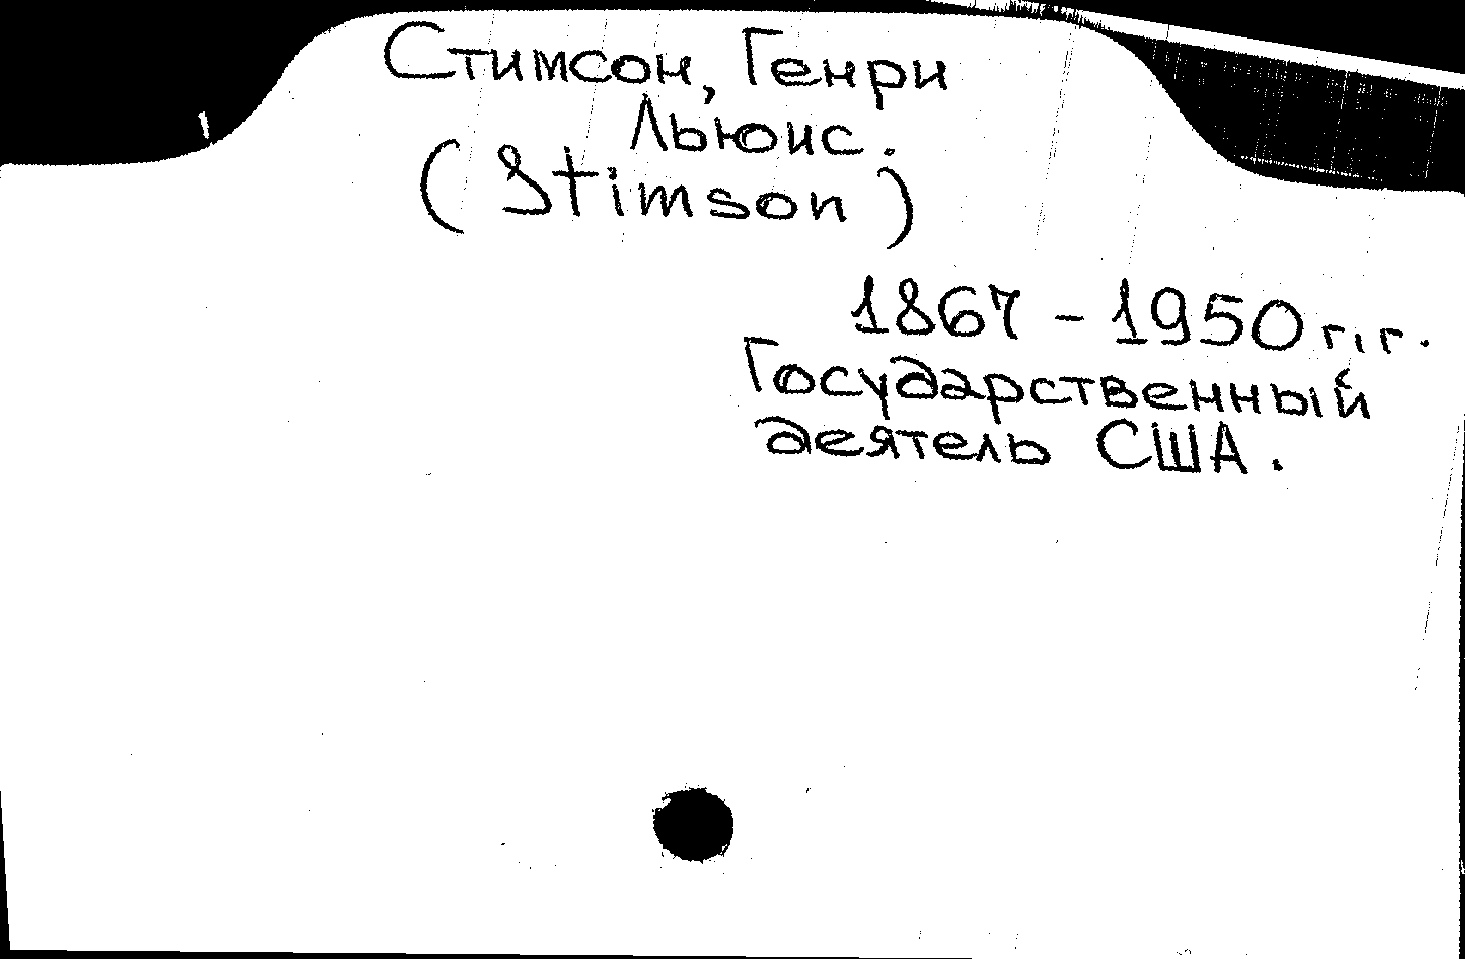 Стимсон, Генри
Льюис.
(Stimson)
1867 - 1950 г.г.
Государственный
деятель США.